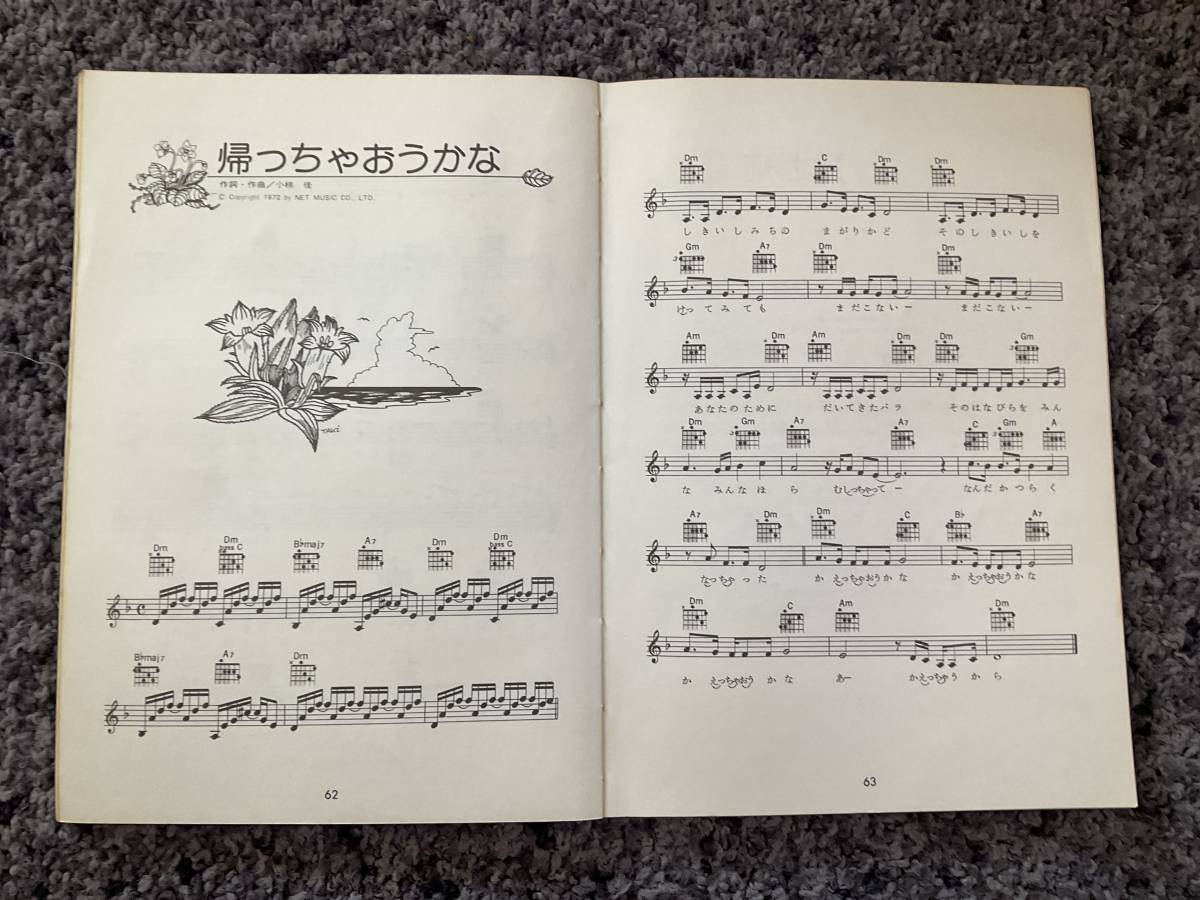 帰っちゃおうかな
作詞・作曲／小椋 佳
© Copyright 1972 by NET MUSIC CO., LTD.
Dm Dm bass C B♭maj7 A7 Dm Dm bass C
B♭maj7 A7 Dm
62
Dm C Dm Dm
しきいしみちの まがりかど そのしきいしを
Gm A7 Dm Dm
3
けってみても まだこないー まだこないー
Am Dm Am Dm Dm Gm
3
あなたのために だいてきたバラ そのはなびらを みん
Dm Gm A7 A7 C Gm A
3 3
な みんなほ ら むしっちゃってー なんだ かつらく
A7 Dm Dm C B♭ A7
なっちゃった か えっちゃおうかな か えっちゃおうかな
Dm C Am Dm
か えっちゃおう かな あー かえっちゃう から
63